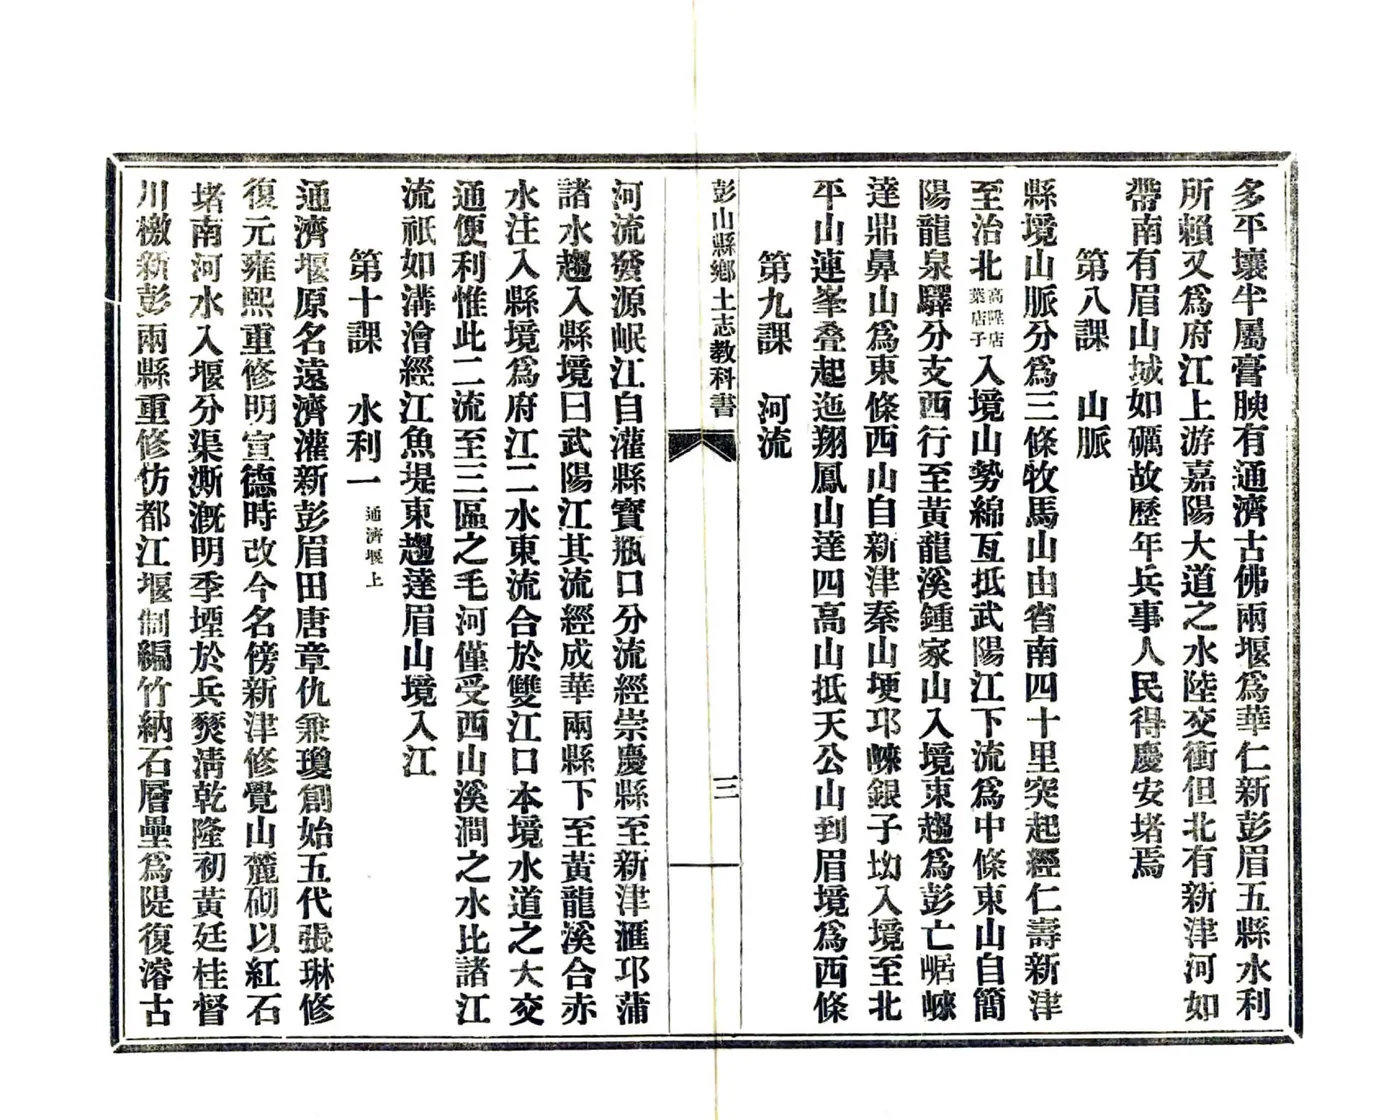 多平壤半屬膏腴有通濟古佛兩堰爲華仁新彭眉五縣水利
所賴又爲府江上游嘉陽大道之水陸交衝但北有新津河如
帶南有眉山城如礪故歷年兵事人民得慶安堵焉
第八課 山脈
縣境山脈分爲三條牧馬山由省南四十里突起經仁壽新津
至治北高陞店葉店子入境山勢綿亙抵武陽江下流爲中條東山自簡
陽龍泉驛分支西行至黃龍溪鍾家山入境東趨爲彭亡崌崍
達鼎鼻山爲東條西山自新津秦山埂邛崍銀子㘭入境至北
平山連峯叠起迤翔鳳山達四高山抵天公山到眉境爲西條
第九課 河流
彭山縣鄉土志教科書 三
河流發源岷江自灌縣寶瓶口分流經崇慶縣至新津滙邛蒲
諸水趨入縣境曰武陽江其流經成華兩縣下至黃龍溪合赤
水注入縣境爲府江二水東流合於雙江口本境水道之大交
通便利惟此二流至三區之毛河僅受西山溪澗之水比諸江
流祇如溝澮經江魚堤東趨達眉山境入江
第十課 水利一 通濟堰上
通濟堰原名遠濟灌新彭眉田唐章仇兼瓊創始五代張琳修
復元雍熙重修明宣德時改今名傍新津修覺山麓砌以紅石
堵南河水入堰分渠澌漑明季堙於兵燹淸乾隆初黃廷桂督
川檄新彭兩縣重修仿都江堰制編竹納石層壘爲隄復濬古